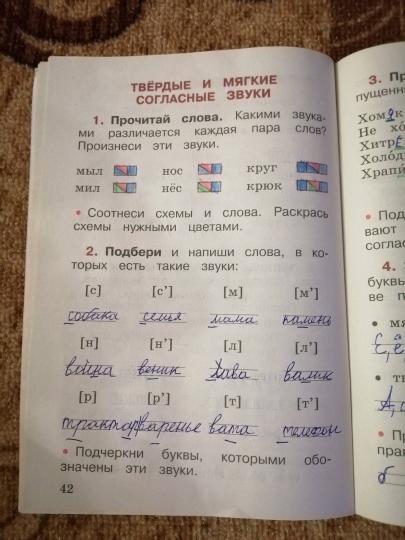 ТВЁРДЫЕ И МЯГКИЕ
СОГЛАСНЫЕ ЗВУКИ
1. Прочитай слова. Какими звука-
ми различается каждая пара слов?
Произнеси эти звуки.
мыл нос круг
мил нёс крюк
• Соотнеси схемы и слова. Раскрась
схемы нужными цветами.
2. Подбери и напиши слова, в ко-
торых есть такие звуки:
[с] [с’] [м] [м’]
собака семья мама камень
[н] [н’] [л] [л’]
война веник лава валик
[р] [р’] [т] [т’]
трактор варенье вата телефон
• Подчеркни буквы, которыми обо-
значены эти звуки.
42
3. Пр
пущенн
Хомяк
Не хо
Хитрё
Холод
Храпи
• Под
вают
соглас
4.
буквы
ве п
• мя
Е, ё
• тв
А, о
• Пр
прав
б